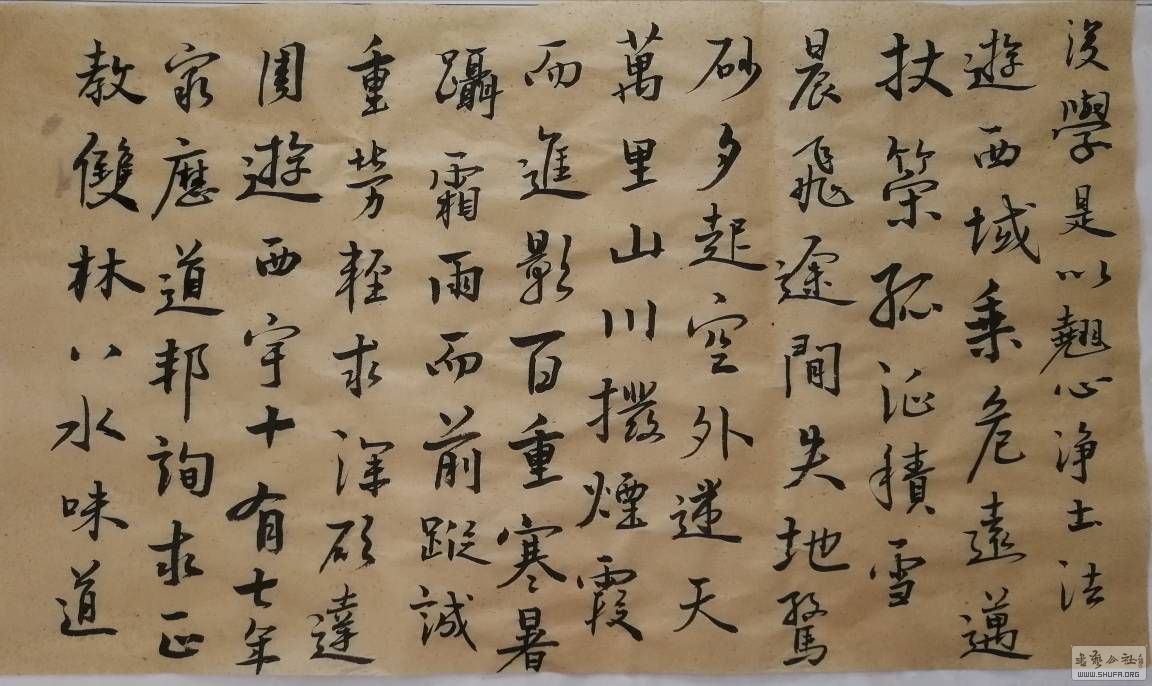 後學是以翹心淨土法
遊西域乘危遠邁
杖策孤征積雪
晨飛途間失地驚
砂夕起空外迷天
萬里山川撥煙霞
而進影百重寒暑
躡霜雨而前蹤誠
重勞輕求深願達
周遊西宇十有七年
窮歷道邦詢求正
教雙林八水味道
书艺公社
WWW.SHUFA.ORG